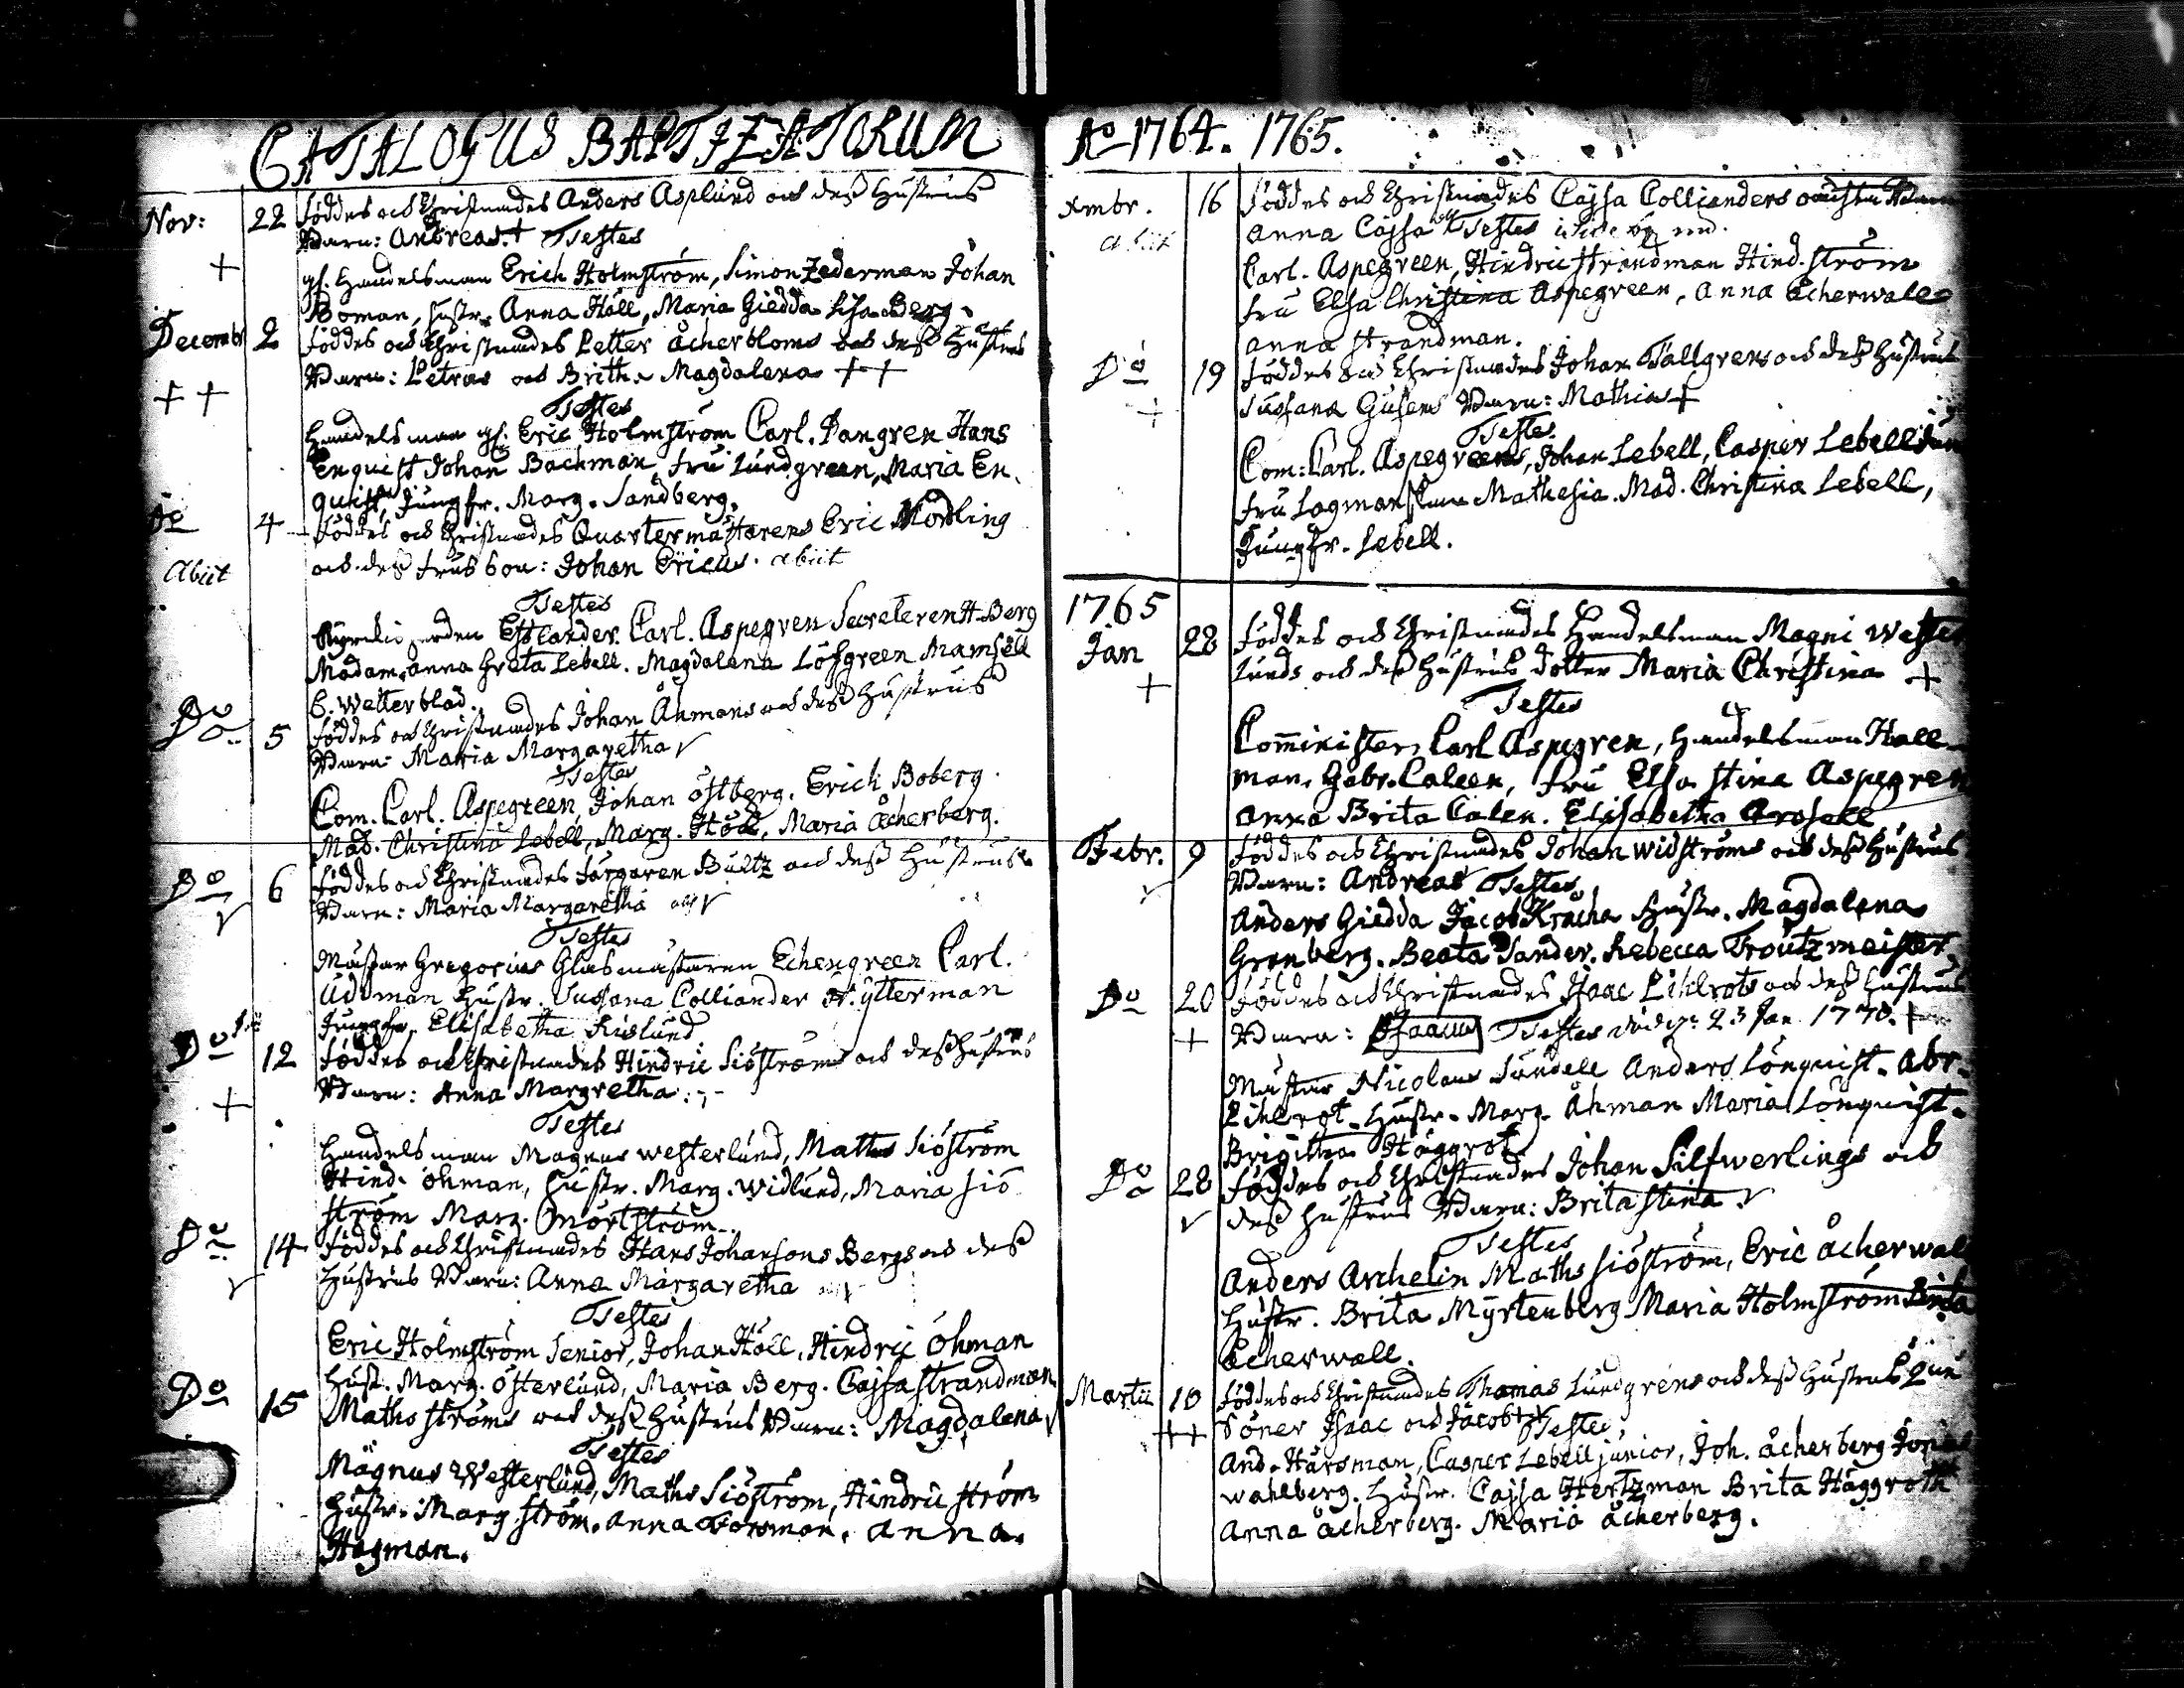 CATALOGUS BAPTIZATORUM
Nov: 22 föddes och Christnades Anders Asplund och deß hustrus
Barn: Andreas. + Testes
+
gl. handelsman Erich Holmström, Simon Zederman Johan
Boman, hustr. Anna Höll, Maria Giedda Lisa Berg.
Decembr 2 föddes och Christnades Petter Åcherbloms och deß hustrus
Barn: Petrus och Britha Magdalena ++
++
Testes
handelsman gl. Eric Holmström Carl. Dangren Hans
Enquist Johan Backman, fru Lundgreen, Maria En
quist, Jungfr. Marg. Sandberg.
Do 4 föddes och Christnades Quartermästarens Eric Nordling
och deß frus Son: Johan Ericus. abiit
Abiit
Testes
Estlander. Carl. Aspegren Secreteren H. Berg
Madam. Anna Greta Lebell. Magdalena Löfgreen Mamsell
C. Wetterblad.
Do 5 föddes och Christnades Johan Åhmans och deß hustrus
Barn: Maria Margaretha
Testes
Com. Carl. Aspegreen, Johan Östberg. Erich Boberg.
Mad. Christina Lebell, Marg. Höck, Maria Åcherberg.
Do 6 föddes och Christnades färgaren Bultz och deß hustrus
Barn: Maria Margaretha
Testes
Mästar Gregorius Glasmästaren Echengreen Carl.
Udman hustr. Susana Colliander A. ytterman
Jungfr. Elisabetha Kislund
Do 12 föddes och Christnades Hindric Siöströms och deß hustrus
Barn: Anna Margretha
+
Testes
Handelsman Magnus Westerlund, Maths Siöström
Hind. Öhman, hustr. Marg. Widlund, Maria Siö
ström Marg. Mörtström.
Do 14 föddes och Christnades Hans Johansons Bergs och deß
hustrus Barn: Anna Margaretha
Testes
Eric Holmström Senior, Johan Höll, Hindric Öhman
Hust. Marg. Österlund, Maria Berg. Cajsa Strandman
Do 15 Maths Ströms och deß hustrus Barn: Magdalena
Testes
Magnus Westerlund, Maths Siöström, Hindric Ström
hustr. Marg. Ström. Anna Forsman. Anna
Hagman.
Ao 1764. 1765.
Xmbr. 16 föddes och Christnades Cajsa Collianders
Anna Cajsa Testes
abiit
Carl. Aspegreen, Hindric Strandman Hind. Ström
fru Elsa Christina Aspegreen, Anna Åcherwall
Anna Strandman.
Do 19 föddes och Christnades Johan Tallgrens och deß hustrus
Susana Gusens Barn: Mathias +
+
Testes
Com: Carl. Aspegreens, Johan Lebell, Casper Lebell Jun
fru Lagmanskan Mathesia. Mad. Christina Lebell,
Jungfr. Lebell.
1765
Jan 28 föddes och Christnades Handelsman Magni Wester
lunds och deß hustrus dotter Maria Christina +
+
Testes
Comminister, Carl Aspegren, handelsman Hall
man, Gabr. Caleen, fru Elsa Stina Aspegren
Anna Brita Calen. Elisabetha Arosell
Febr. 9 föddes och Christnades Johan Widströms och deß hustrus
Barn: Andreas Testes
Anders Giedda Jacob Kråcha hustr. Magdalena
Grönberg. Beata Sander. Rebecca Troutzmeister.
Do 20 föddes och Christnades Isaac Pihlrots och deß hustrus
+ Barn: Isaacus Testes död d. 23 Jan 1770. +
Mästar Nicolaus Sundell Anders Lönquist. Abr.
Pihlrot. hustr. Marg. Åhman Maria Lönquist.
Brigitha Häggrot
Do 28 föddes och Christnades Johan Silfwerlings och
deß hustrus Barn: Brita Stina
Testes
Anders Archelin Maths Siöström, Eric Åcherwal
hustr. Brita Myrtenberg Maria Holmström Brita
Åcherwall.
Martii 10 föddes och Christnades Thomas Lundgrens och deß hustrus 2ne
++ Söner Isaac och Jacob ++ Testes
And. Hårsman, Casper Lebell junior, Joh. Åcherberg Jonas
Wahlberg. hustr. Cajsa Hertzman Brita Häggroth
Anna Åcherberg. Maria Åcherberg.